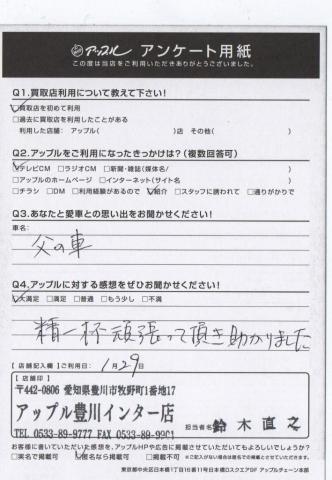 アップル アンケート用紙
この度は当店をご利用いただきありがとうございました。
Q1.買取店利用について教えて下さい!
☑買取店を初めて利用
□過去に買取店を利用したことがある
利用した店舗: アップル( )店 その他( )
Q2.アップルをご利用になったきっかけは?(複数回答可)
☑テレビCM □ラジオCM □新聞・雑誌(媒体名/ )
□アップルのホームページ □インターネット(サイト名 )
□チラシ □DM □利用経験があるので ☑紹介 □スタッフに誘われて □通りがかりで
Q3.あなたと愛車との思い出をお聞かせください!
車名:
父の車
Q4.アップルに対する感想をぜひお聞かせください!
☑大満足 □満足 □普通 □もう少し □不満
精一杯頑張って頂き助かりました
【店舗記入欄】ご利用日: 1月29日
【店舗印】
〒442-0806 愛知県豊川市牧野町1番地17
アップル豊川インター店
TEL 0533-89-9777 FAX 0533-89-9961
担当者名 鈴木直之
お客様に書いていただいた感想を、アップルHPや広告に掲載させていただいてもよろしいでしょうか?
□実名で掲載可 ☑匿名なら掲載可 □掲載不可
東京都中央区日本橋1丁目16番11号日本橋DスクエアDF アップルチェーン本部